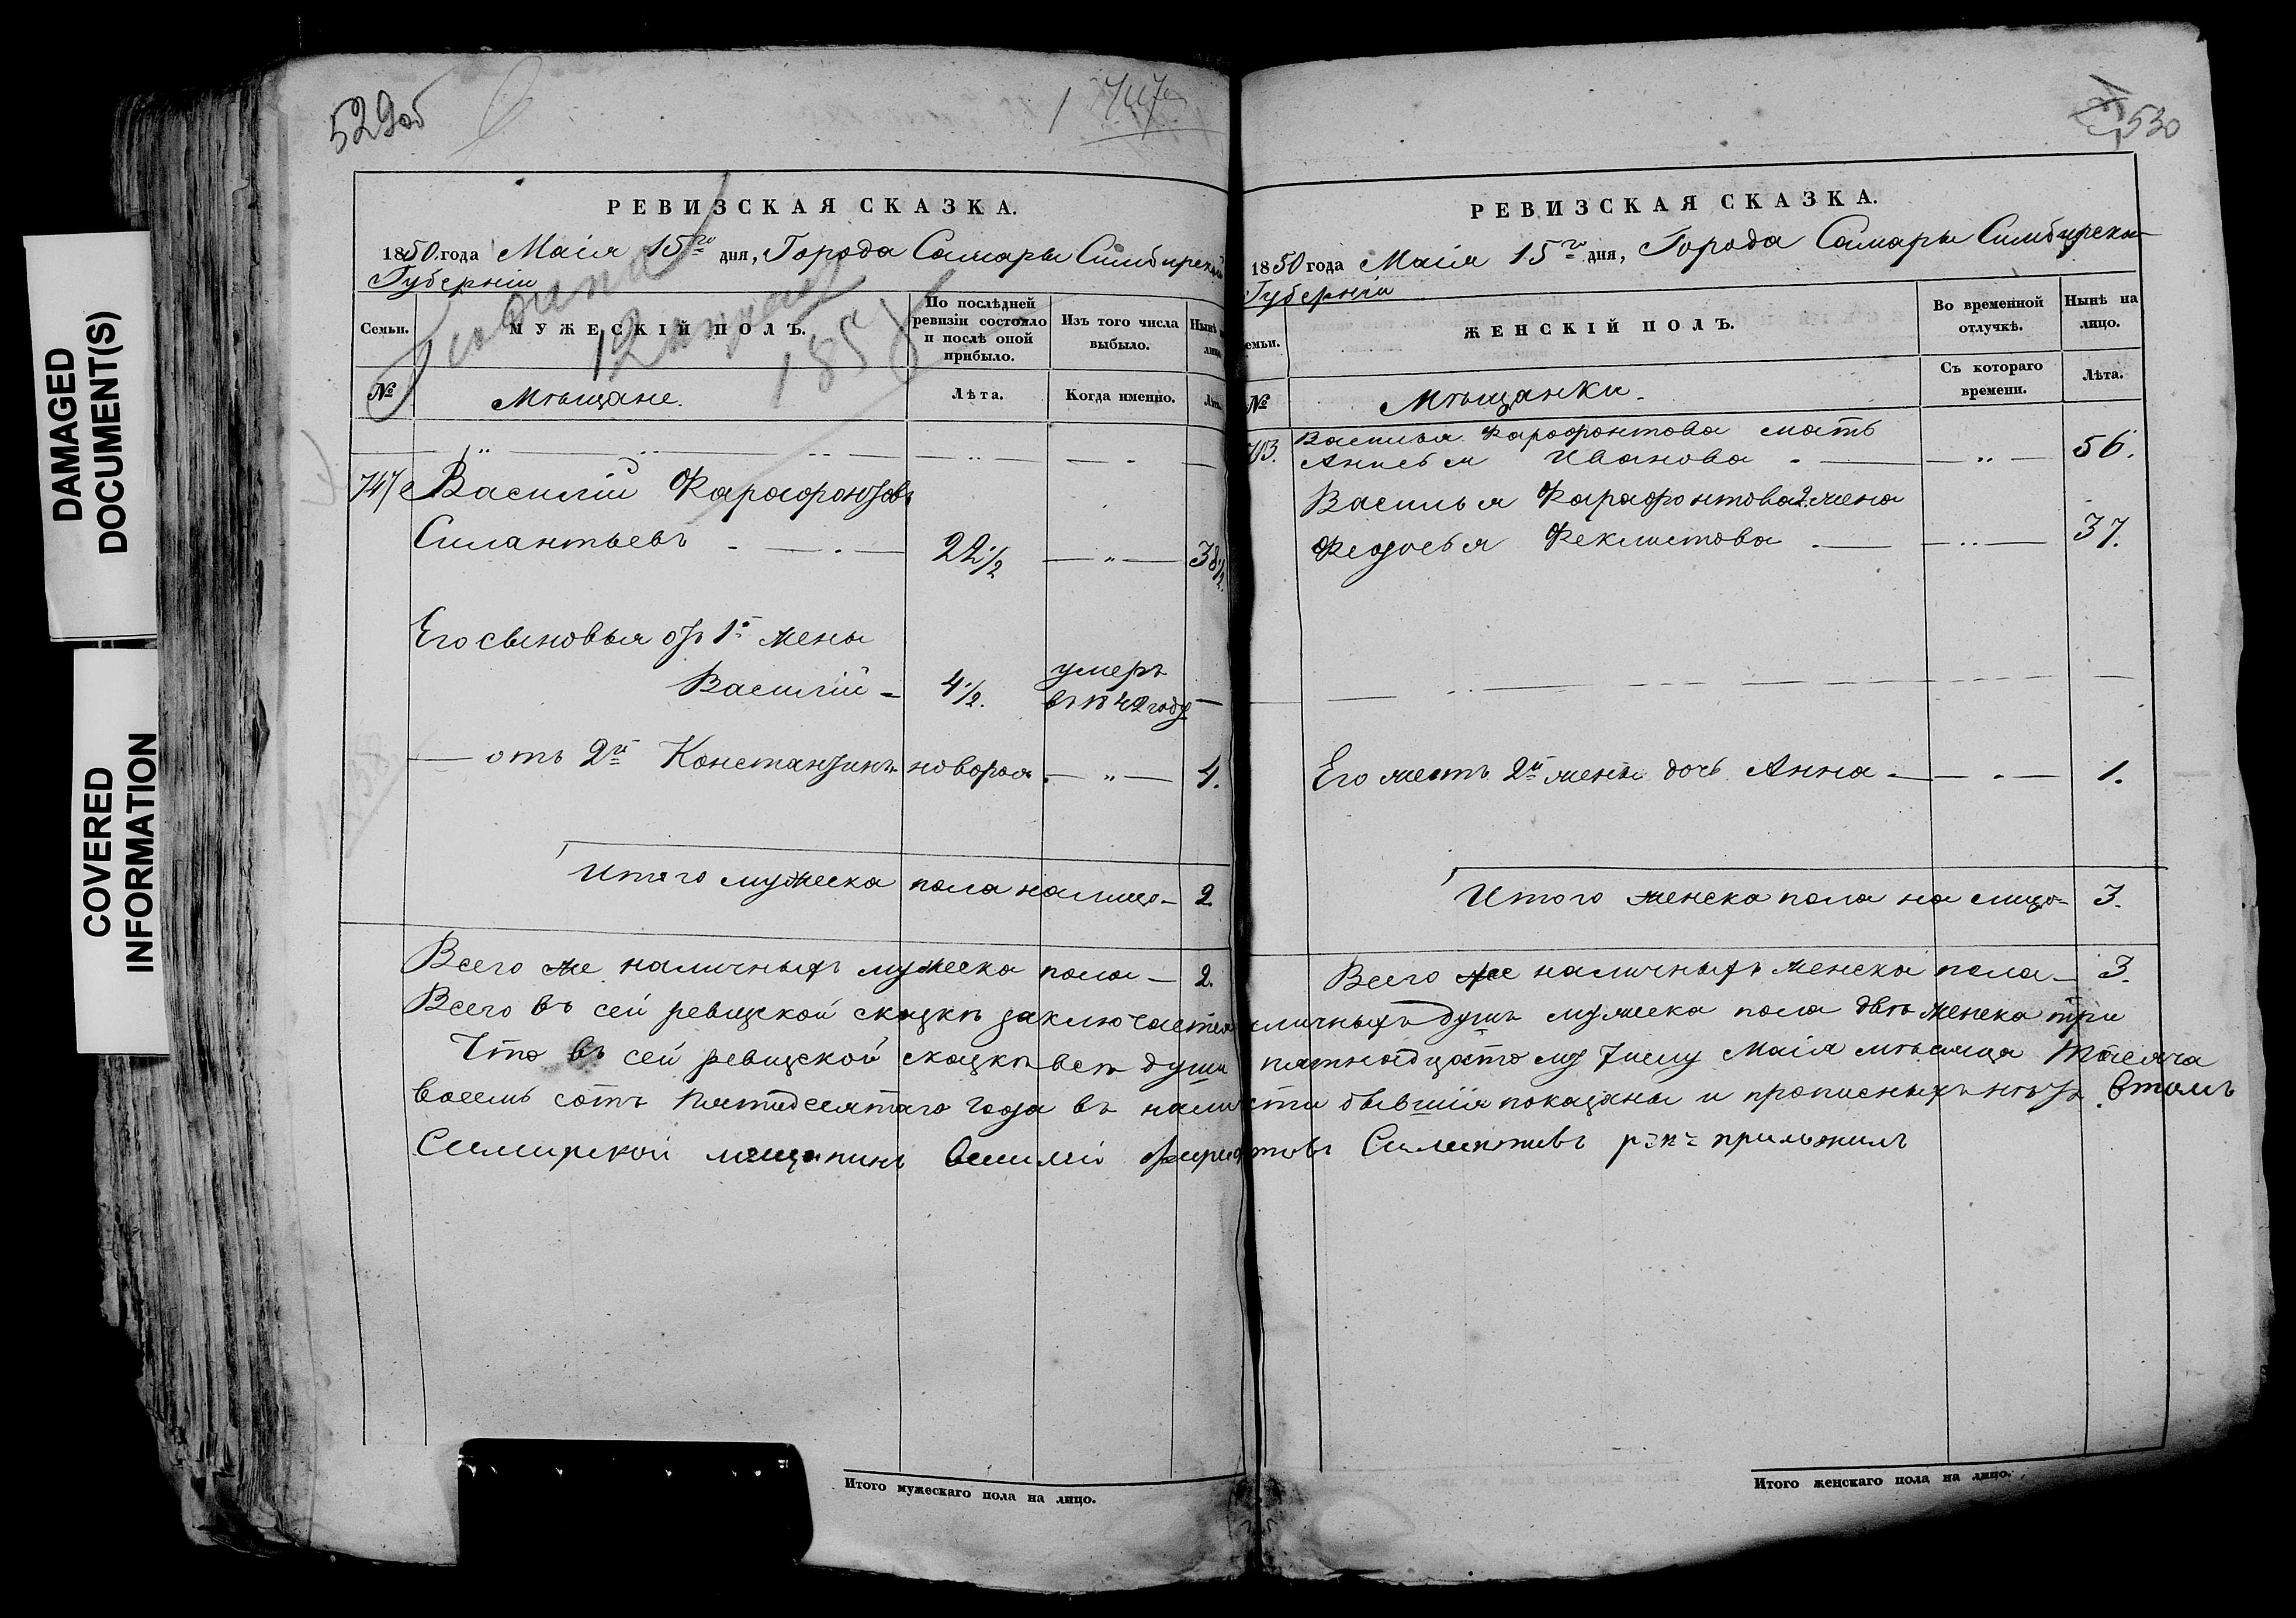 DAMAGED
DOCUMENT(S)
COVERED
INFORMATION
529об
1747
РЕВИЗСКАЯ СКАЗКА.
1850 года Маія 15го дня, Города Самары Симбирской
Губерніи
1858
Семьи.
МУЖЕСКІЙ ПОЛЪ.
По послѣдней
ревизіи состояло
и послѣ оной
прибыло.
Изъ того числа
выбыло.
Нынѣ
лицо
№
Мѣщане.
Лѣта.
Когда именно.
Лѣта.
747
Василій Фарафонтовъ
Силантьевъ 22½ — " — 38½.
Его сыновья отъ 1й жены
Василій - 4½. умеръ
въ 1842 году —
— отъ 2й Константинъ новорож. — " — 4.
Итого мужеска пола на лицо - 2.
Всего же наличныхъ мужеска пола - 2.
530
РЕВИЗСКАЯ СКАЗКА.
1850 года Маія 15го дня, Города Самары Симбирской
Губерніи
Семьи.
ЖЕНСКІЙ ПОЛЪ.
Во временной
отлучкѣ.
Нынѣ на
лицо.
№
Мѣщанки.
Съ котораго
времени.
Лѣта.
Василья Фарафонтова мать
Анисья Иванова - — — " — 56.
Василья Фарафонтова 2. жена
Федосья Феклистова - — — " — 37.
Его жеотъ 2й жены дочь Анна - — - — 1.
Итого женска пола на лицо - 3.
Всего же наличныхъ женска пола - 3.
Всего въ сей ревизской сказкѣ заключается наличныхъ душъ мужеска пола двѣ женска три
Что въ сей ревизской сказкѣ все души пятнадцатому числу Маія мѣсяца тысяча
восемь сотъ пятидесятаго года въ наличности бывшія показаны и прописныхъ нѣтъ. Втомъ
Самарской мещанинъ Василій Фарафонтовъ Силантивъ приложилъ
Итого мужескаго пола на лицо.
Итого женскаго пола на лицо.